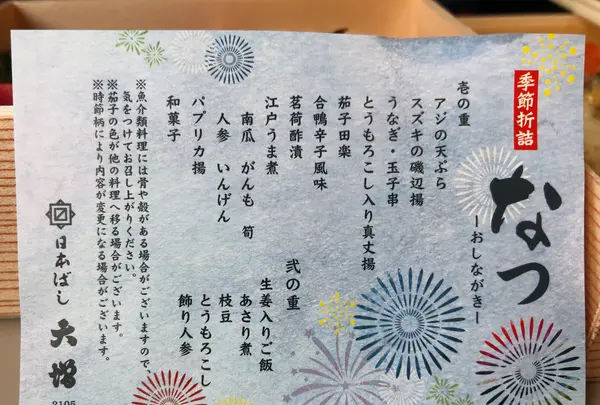 季節折詰
なつ
ーおしながきー
壱の重
アジの天ぷら
スズキの磯辺揚
うなぎ・玉子串
とうもろこし入り真丈揚
茄子田楽
合鴨辛子風味
茗荷酢漬
江戸うま煮
南瓜 がんも 筍
人参 いんげん
パプリカ揚
和菓子
弐の重
生姜入りご飯
あさり煮
枝豆
とうもろこし
飾り人参
※魚介類料理には骨や殻がある場合がございますので、
気をつけてお召し上がりください。
※茄子の色が他の料理へ移る場合がございます。
※時節柄により内容が変更になる場合がございます。
日本ばし
大増
2105